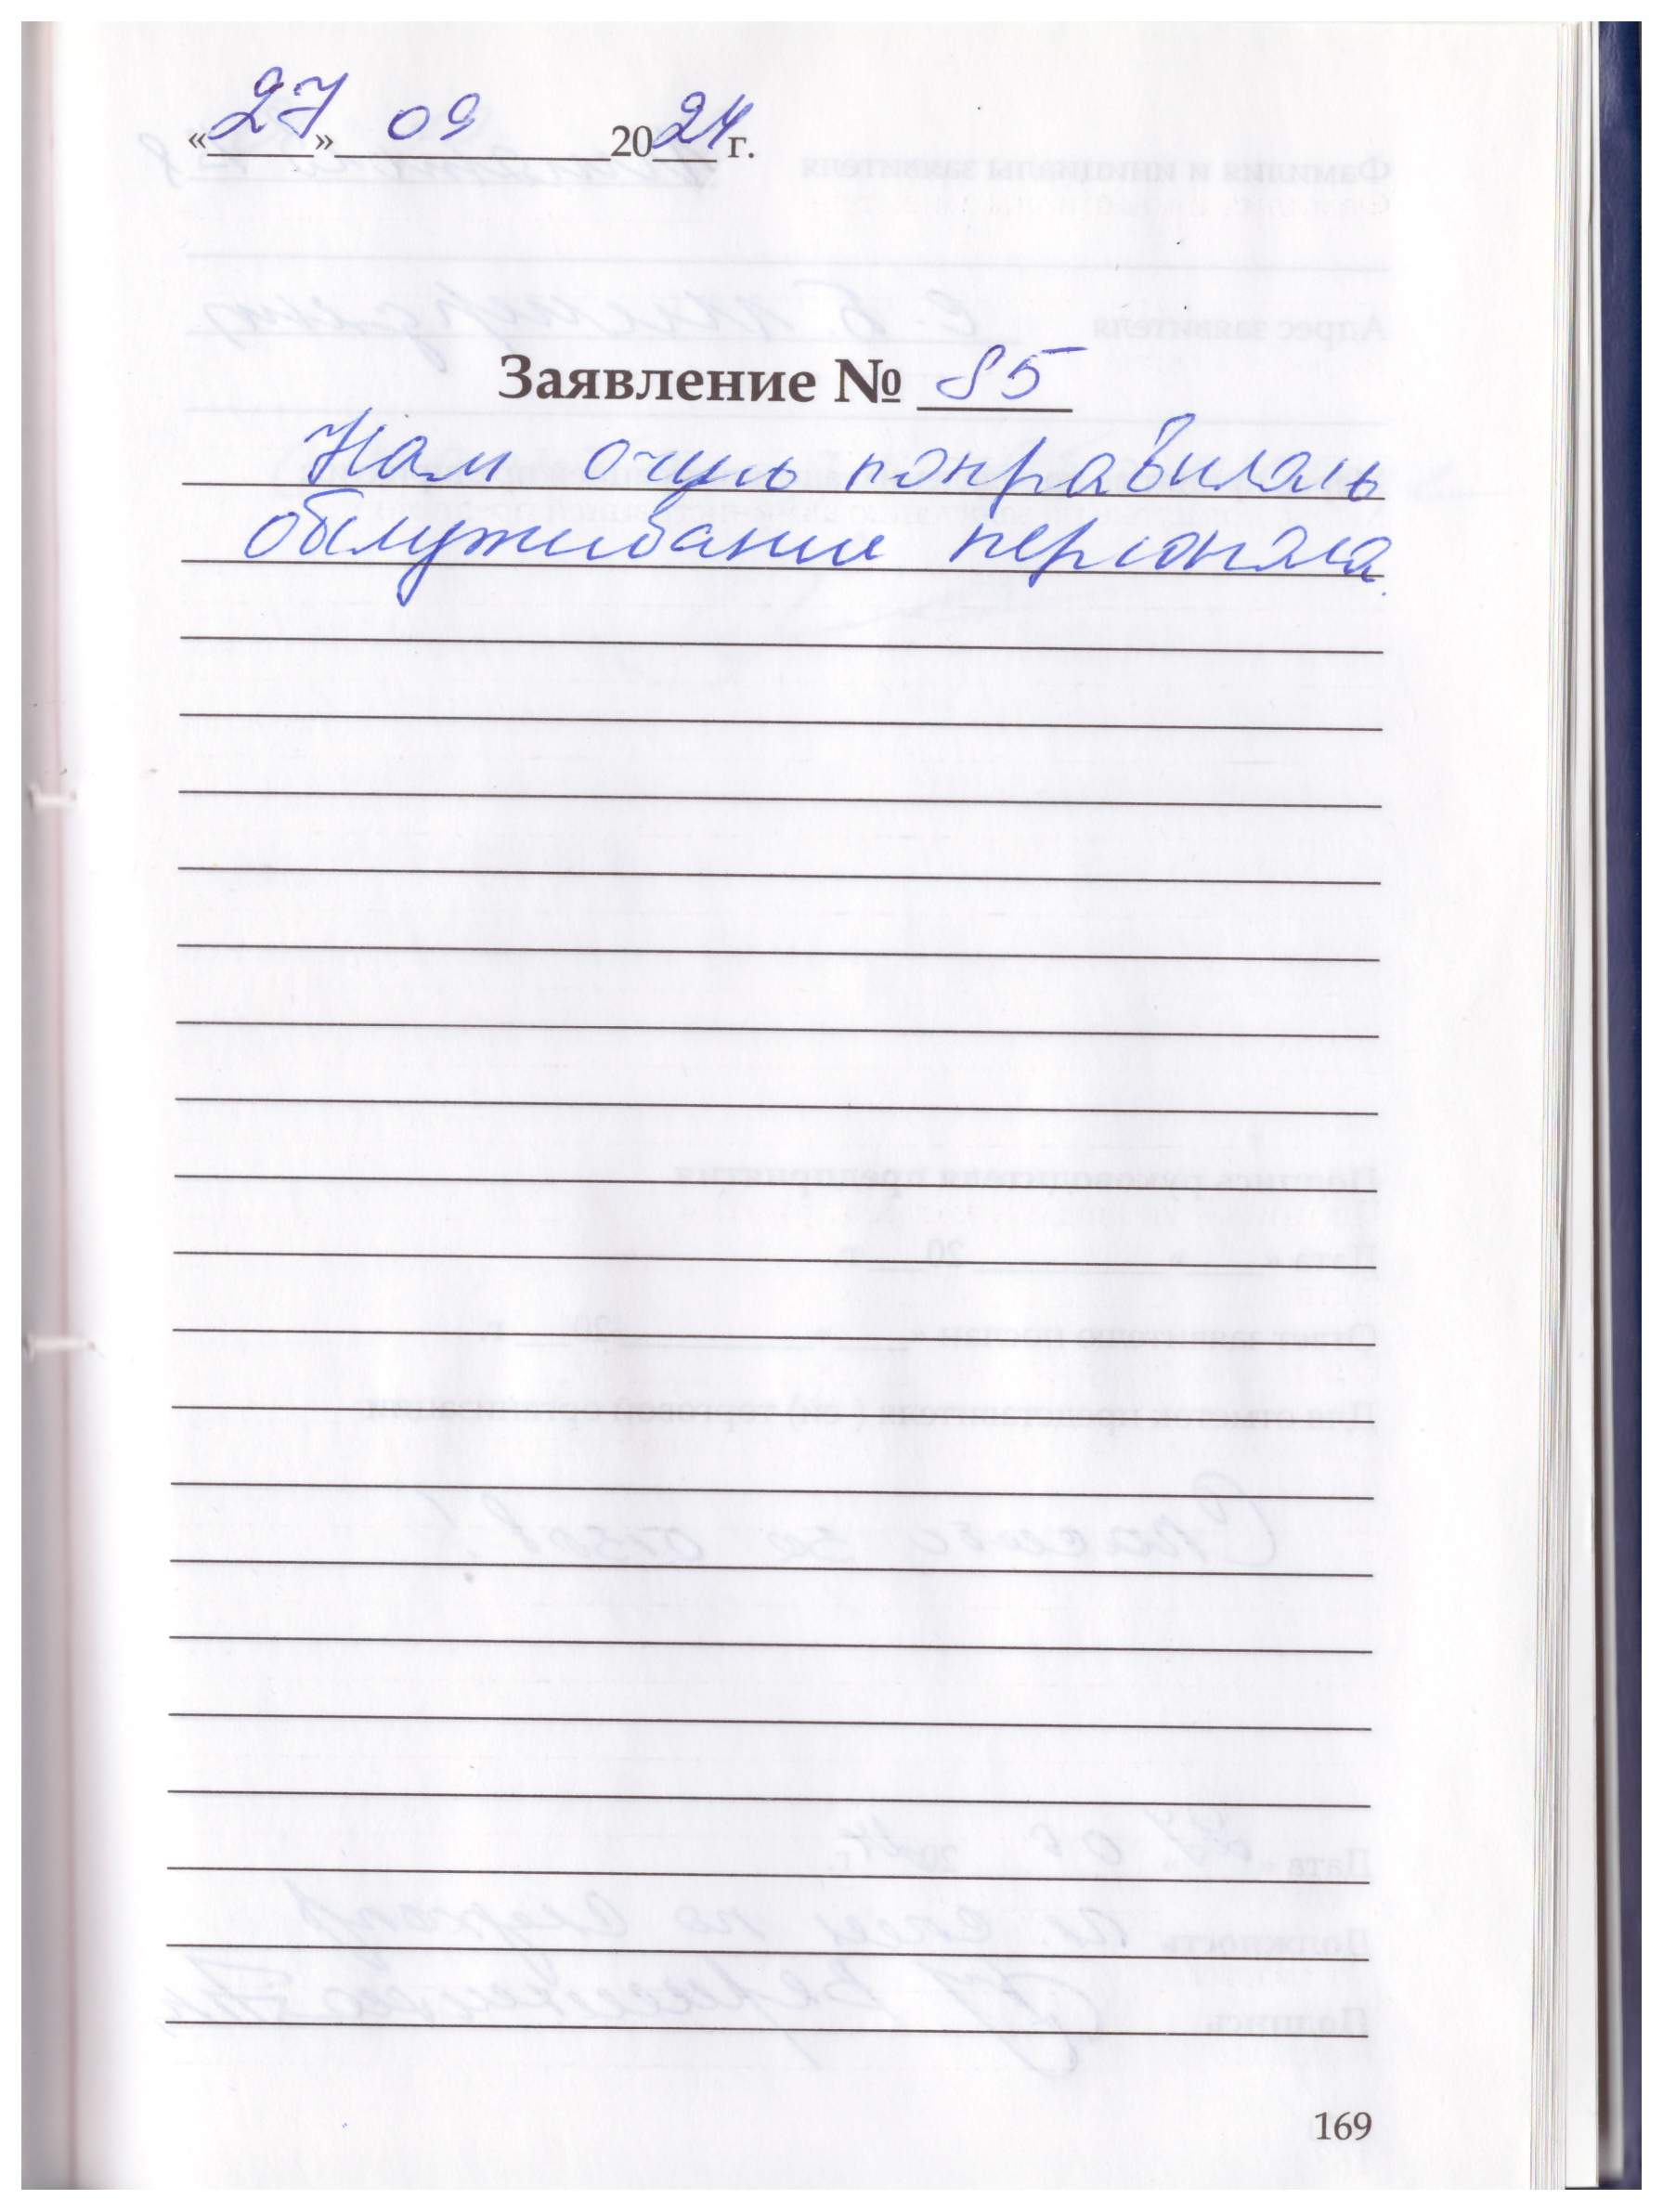 «27» 09 2024 г.
Заявление № 85
Нам очень понравилось
обслуживание персонала.
169